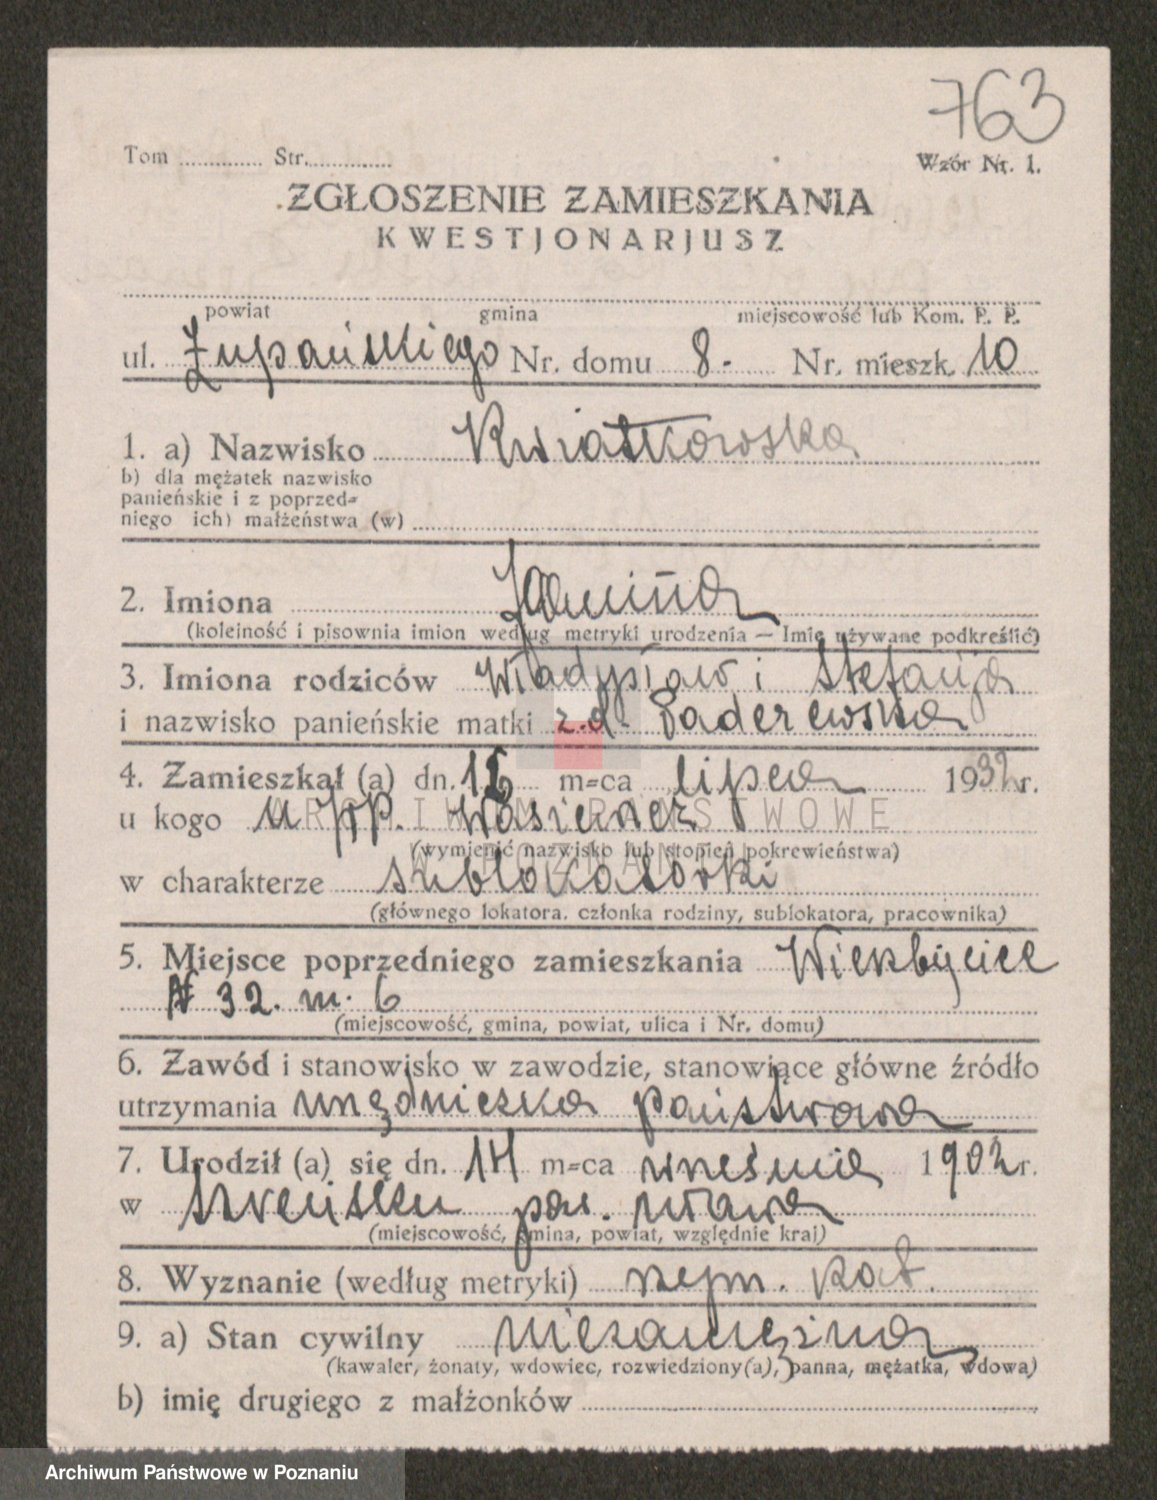 763
Tom ............ Str. ............
Wzór Nr. 1.
ZGŁOSZENIE ZAMIESZKANIA
KWESTJONARJUSZ
powiat gmina miejscowość lub Kom. P. P.
ul. Żupańskiego Nr. domu 8.- Nr. mieszk. 10
1. a) Nazwisko Kwiatkowska
b) dla mężatek nazwisko
panieńskie i z poprzed-
niego ich) małżeństwa (w)
2. Imiona Janina
(kolejność i pisownia imion według metryki urodzenia — Imię używane podkreślić)
3. Imiona rodziców Władysław i Stefanja
i nazwisko panieńskie matki z.d. Paderewska
4. Zamieszkał (a) dn. m-ca lipca 1932 r.
u kogo u pp. Wasiewicz
ARCHIWUM PAŃSTWOWE
(wymienić nazwisko lub stopień pokrewieństwa)
W POZNANIU
w charakterze sublokatorki
(głównego lokatora, członka rodziny, sublokatora, pracownika)
5. Miejsce poprzedniego zamieszkania Wierzbięcice
N 32. m. 6
(miejscowość, gmina, powiat, ulica i Nr. domu)
6. Zawód i stanowisko w zawodzie, stanowiące główne źródło
utrzymania urzędniczka państwowa
7. Urodził (a) się dn. 14 m-ca wrześnie 1902 r.
w Szreńsku pow. Mława
(miejscowość, gmina, powiat, względnie kraj)
8. Wyznanie (według metryki) rzym. kat.
9. a) Stan cywilny niezamężna
(kawaler, żonaty, wdowiec, rozwiedziony(a), panna, mężatka, wdowa)
b) imię drugiego z małżonków
Archiwum Państwowe w Poznaniu